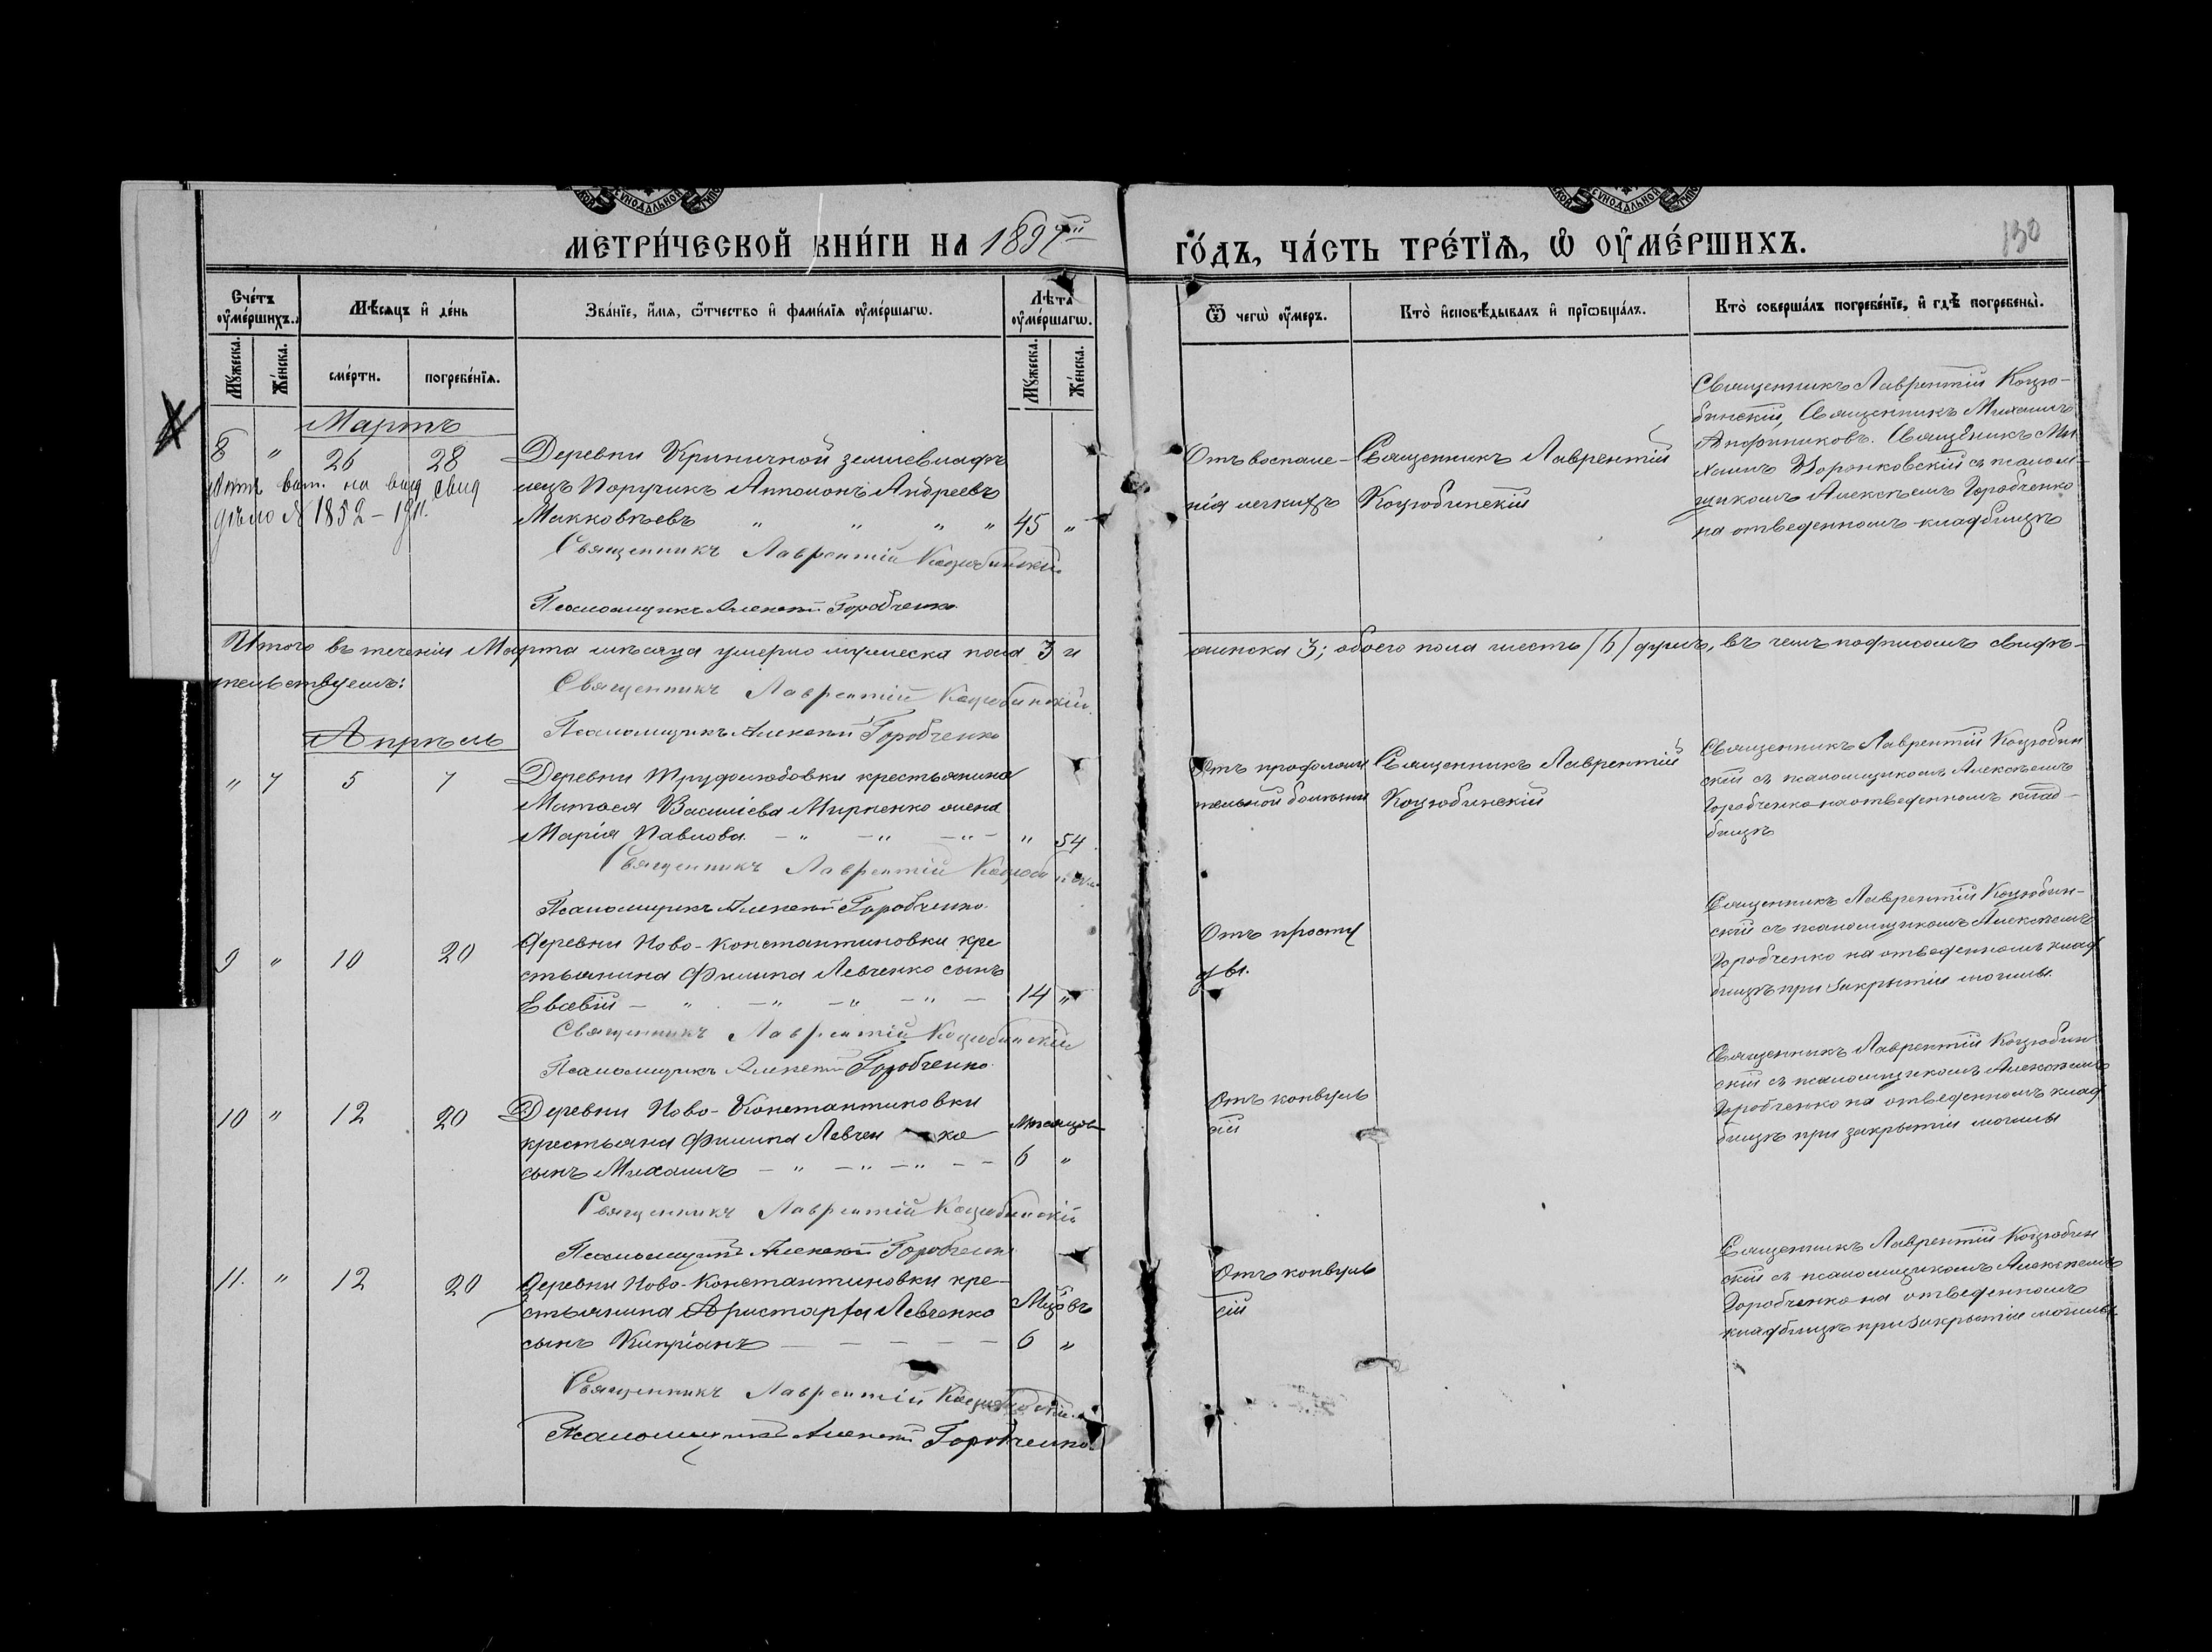 МЕТРИ́ЧЕСКОЙ КНИ́ГИ НА 1897й
ГО́ДЪ, ЧА́СТЬ ТРЕ́ТЇѦ, Ѡ ОУ҆МЕ́РШИХЪ.
130
Сче́тъ оу҆ме́ршихъ.
Мѣ́сяцъ и҆ де́нь
Зва́нїе, и҆́мя, ѻ҆́тчество и҆ фами́лїя оу҆ме́ршагѡ.
Лѣ́та оу҆ме́ршагѡ.
Ѿ чегѡ̀ оу҆́меръ.
Кто̀ и҆сповѣ́дывалъ и҆ прїѡбща́лъ.
Кто̀ соверша́лъ погребе́нїе, и҆ гдѣ̀ погребены̀.
Му́жеска.
Же́нска.
сме́рти.
погребе́нїя.
Му́жеска.
Же́нска.
Мартъ
8 " 26 28
Деревни Криничной землевладѣ
лецъ Поручикъ Аполонъ Андреевъ
Макковѣевъ " " " " 45 "
выт. на выд свид
дѣло № 1852 – 1911.
Священникъ Лаврентій Коцюбинскій
Псаломщикъ Алексѣй Горобченко
Отъ воспале-
нія легкихъ
Священникъ Лаврентій
Коцюбинскій
Священникъ Лаврентій Коцю-
бинскій, Священникъ Михаилъ
Священникъ Ми
хаилъ Воронковскій съ псалом-
щикомъ Алексѣемъ Горобченко
на отведенномъ кладбищѣ
Итого въ теченіи Марта мѣсяца умерло мужеска пола 3 и
женска 3; обоего пола шесть /6/ душъ, въ чемъ подписомъ свидѣ-
тельствуемъ:
Священникъ Лаврентій Коцюбинскій
Псаломщикъ Алексѣй Горобченко
Апрѣль
" 7 5 7
Деревни Труфолюбовки крестьянина
Матвея Василіева Мирненко жена
Марія Павлова – " – " – " – " 54
Священникъ Лаврентій Коцюбинскій
Псаломщикъ Алексѣй Горобченко.
Отъ продолжи
тельной болѣзни
Священникъ Лаврентій
Коцюбинскій
Священникъ Лаврентій Коцюбин
скій съ псаломщикомъ Алексѣемъ
Горобченко на отведенномъ клад-
бищѣ
9 " 10 20
Деревни Ново-Константиновки кре
стьянина Филипа Левченко сынъ
Евсевій – " – " – " – " – 14 "
Священникъ Лаврентій Коцюбинскій
Псаломщикъ Алексѣй Горобченко.
Отъ просту
ды.
Священникъ Лаврентій Коцюбин-
скій съ псаломщикомъ Алексѣемъ
Горобченко на отведенномъ клад
бищѣ при закрытіи могилы
10 " 12 20
Деревни Ново-Константиновки
крестьяна Филипа Левченко
сынъ Михаилъ – " – " – " – –
Мѣсяцовъ
6 "
Священникъ Лаврентій Коцюбинскій
Псаломщикъ Алексѣй Горобченко
Отъ конвуль
сій
Священникъ Лаврентій Коцюбин
скій съ псаломщикомъ Алексѣемъ
Горобченко на отведенномъ клад
бищѣ при закрытіи могилы
11. " 12 20
Деревни Ново-Константиновки кре-
стьянина Аристарха Левченко
сынъ Кипріанъ – – – – –
Мцовъ
6 "
Священникъ Лаврентій Коцюбинскій
Псаломщикъ Алексѣй Горобченко.
Отъ конвуль
сій
Священникъ Лаврентій Коцюбин
скій съ псаломщикомъ Алексѣемъ
Горобченко на отведенномъ
кладбищѣ при закрытіи могилы